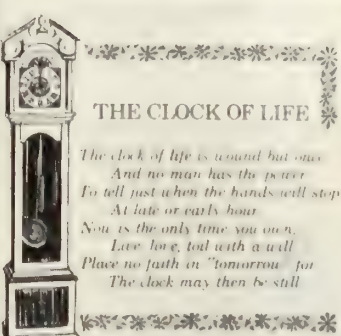 THE CLOCK OF LIFE
The clock of life is wound but once
And no man has the power
To tell just when the hands will stop
At late or early hour
Now is the only time you own,
Live, love, toil with a will
Place no faith in "tomorrow" for
The clock may then be still